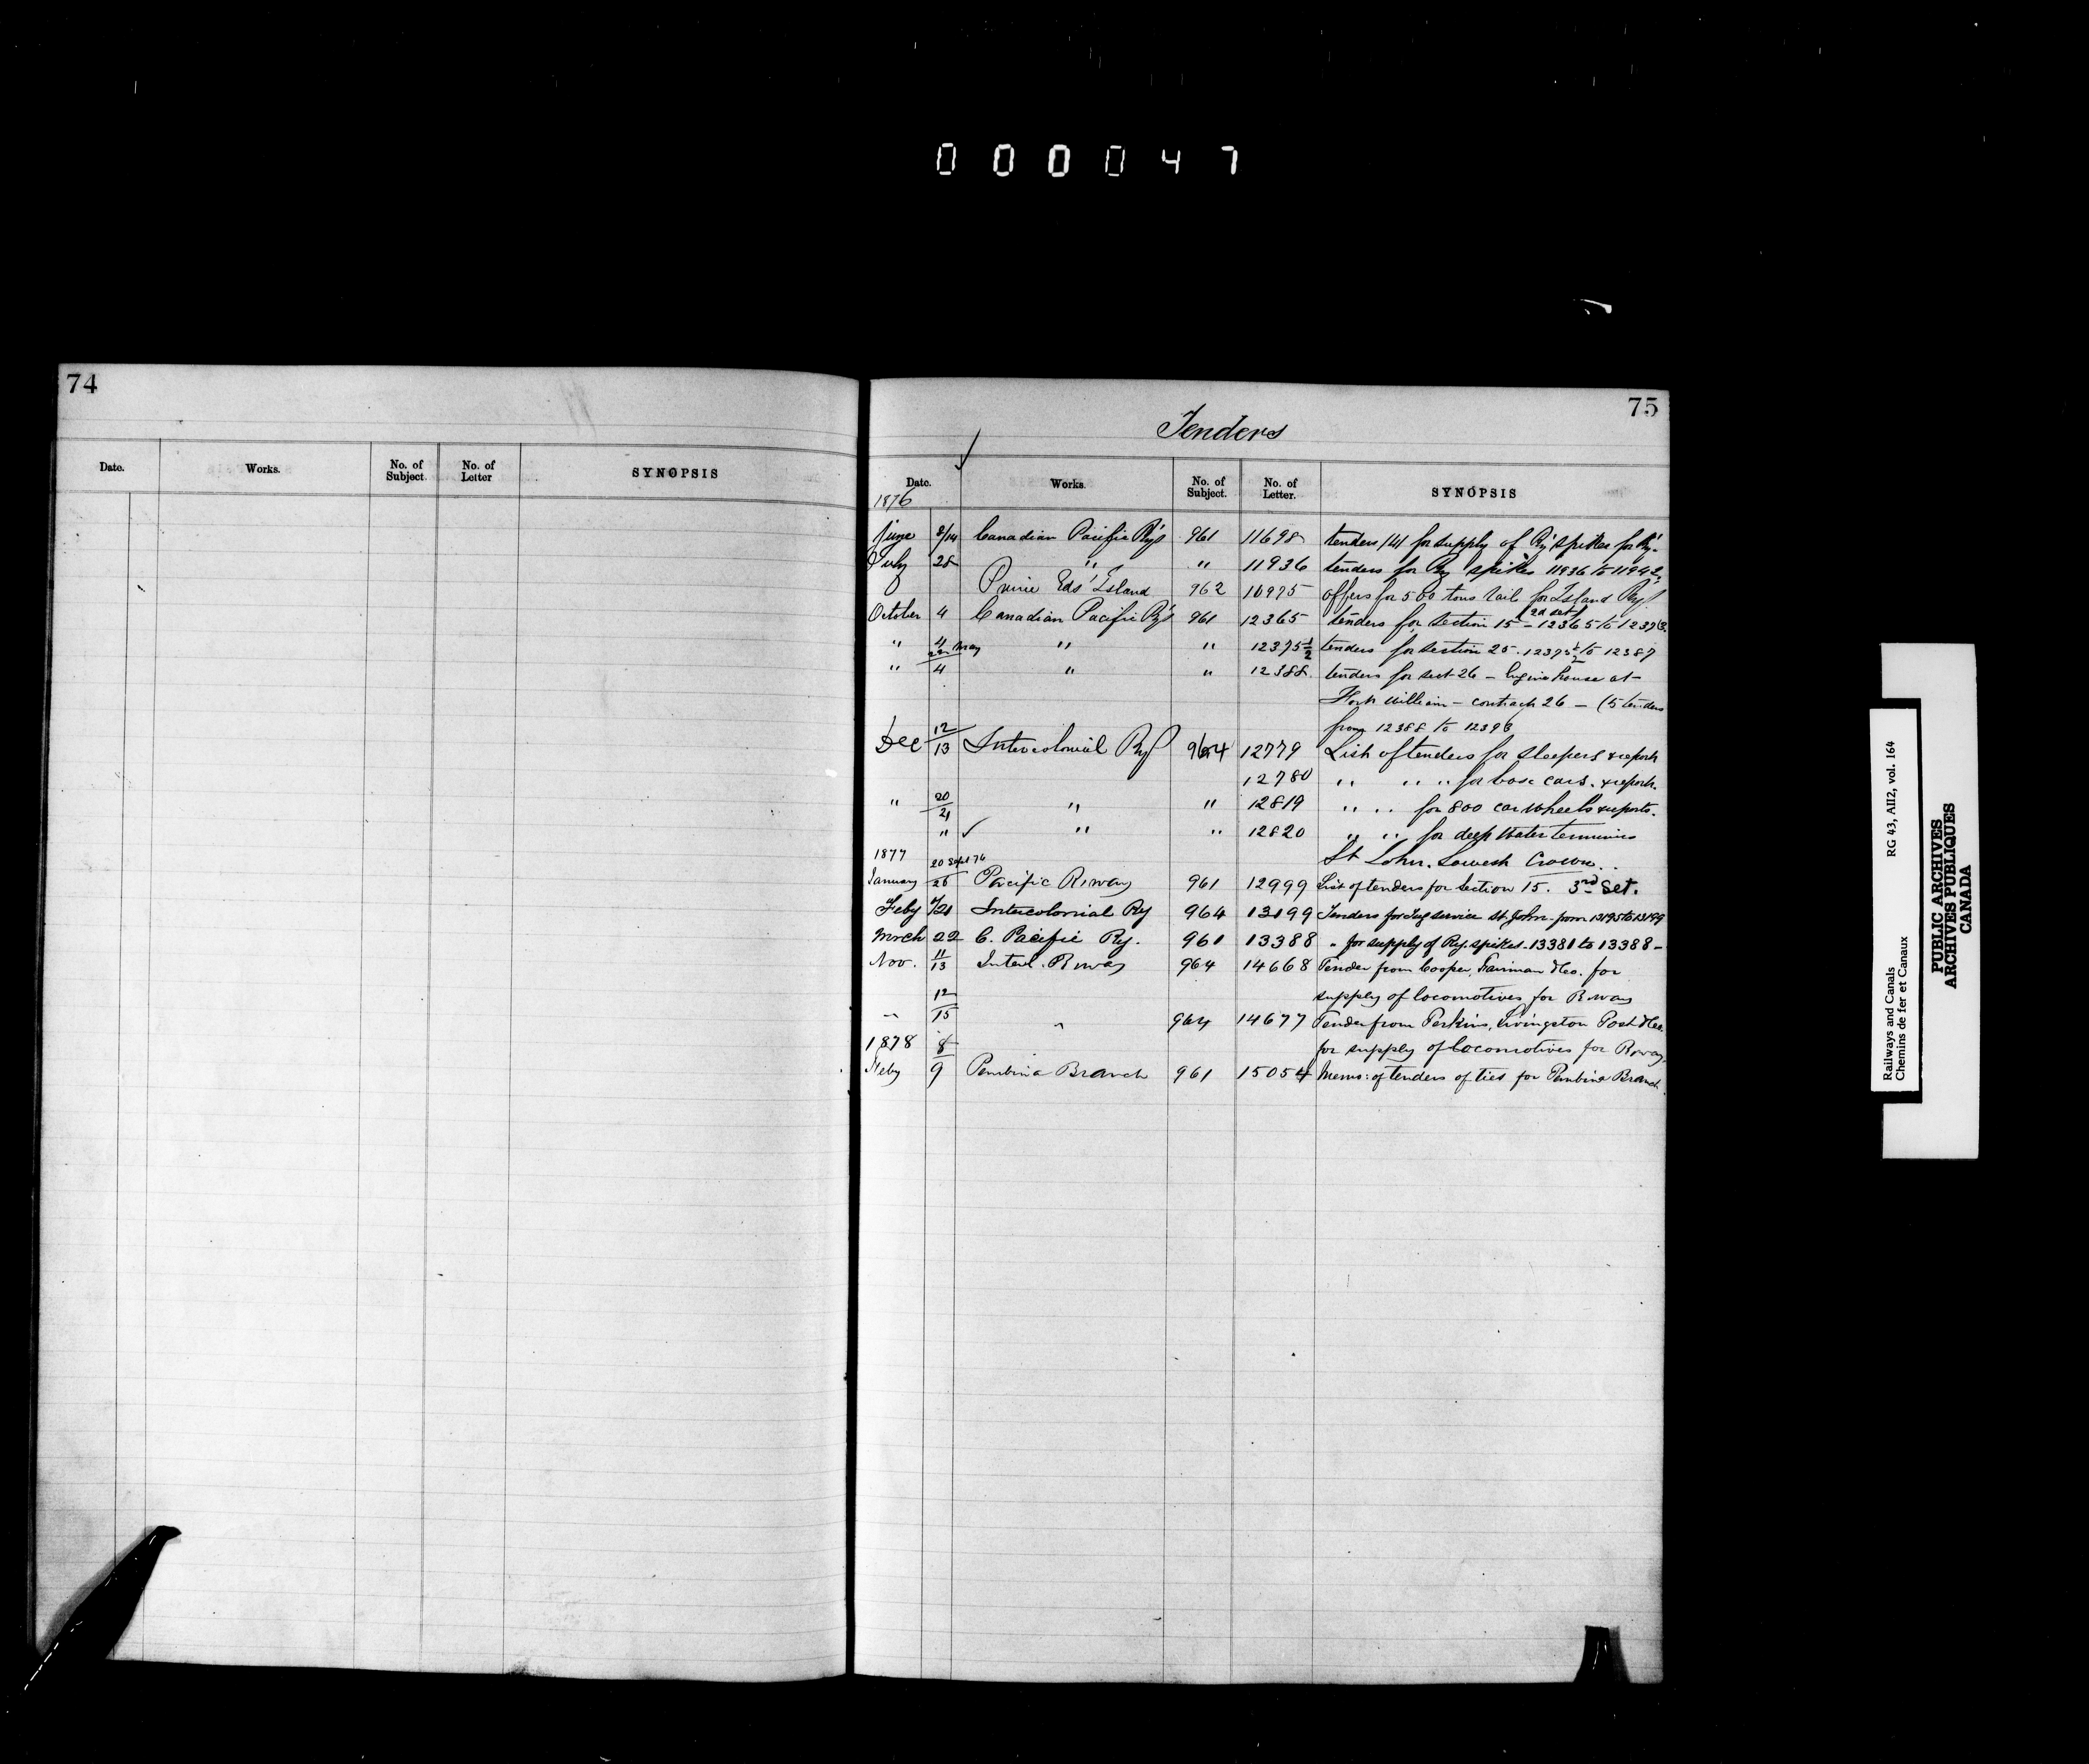 000047
74
Date. Works. No. of Subject. No. of Letter SYNOPSIS
75
Tenders
Date. Works. No. of Subject. No. of Letter. SYNOPSIS
1876
June 8/14 Canadian Pacific Ry 961 11698 tenders /141 for supply of Ry spikes for Ry.
July 28 " " 11936 tenders for Ry spikes 11936 to 11942
Prince Eds' Island 962 10975 offers for 500 tons rail for Island Ry
October 4 Canadian Pacific Ry 961 12365 tenders for section 15 - 2d set 12365 to
" 4 22 May " " 12375½ tenders for section 25. 12375½ to 12387
" 4 " " 12388. tenders for sect 26 - Engine house at
Fort William - contract 26 - (5 tenders
from 12388 to 12396
Dec 12/13 Intercolonial Ry 964 12779 List of tenders for sleepers & report
12780 " " " for box cars. & reports.
" 20/21 " " 12819 " " for 800 car wheels & reports.
" ✓ " " 12820 " " for deep water terminus
St John. Lowest Crown.
1877
January 20 Sept 76/26 Pacific Rway 961 12999 List of tenders for Section 15. 3rd Set.
Feby /21 Intercolonial Ry 964 13199 Tenders for Tug service St. John - from 13195 to 13199
Mrch 22 C. Pacific Ry. 961 13388 " for supply of Ry. spikes - 13381 to 13388 -
Nov. 11/13 Interl. Rway 964 14668 Tender from Cooper, Fairman & Co. for
supply of locomotives for Rway
" 12/15 " 964 14677 Tender from Perkins, Livingston Post & Co.
for supply of locomotives for Rway.
1878
Feby 8/9 Pembina Branch 961 15054 Memo: of tenders of ties for Pembina Branch
Railways and Canals RG 43, AII2, vol. 164
Chemins de fer et Canaux
PUBLIC ARCHIVES
ARCHIVES PUBLIQUES
CANADA